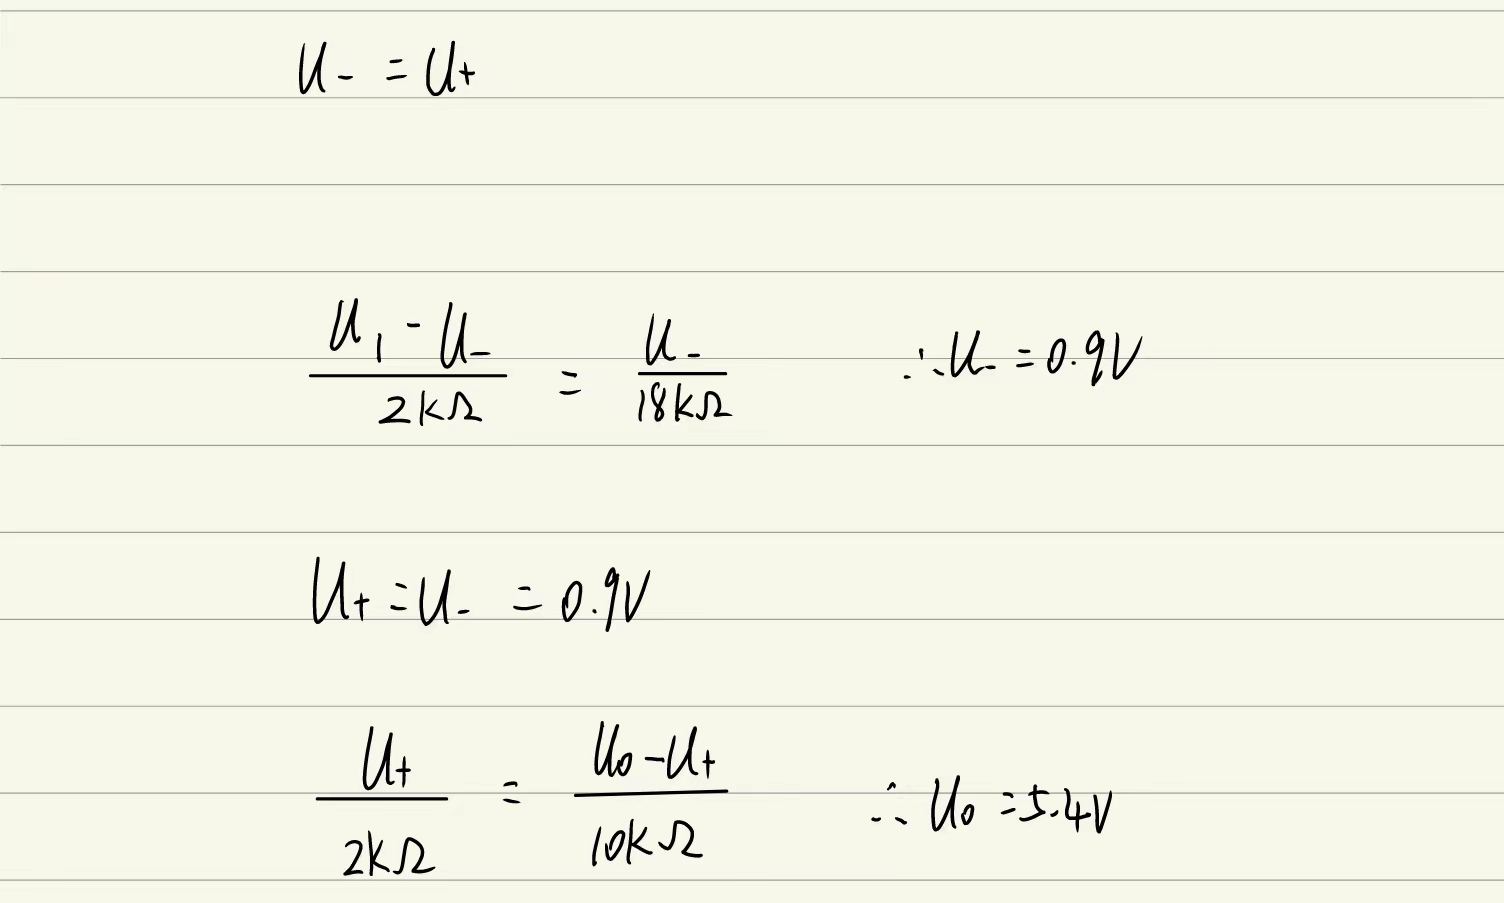 U₋ = U₊
(U₁ - U₋)/2kΩ = U₋/18kΩ ∴ U₋ = 0.9V
U₊ = U₋ = 0.9V
U₊/2kΩ = (U₀ - U₊)/10kΩ ∴ U₀ = 5.4V